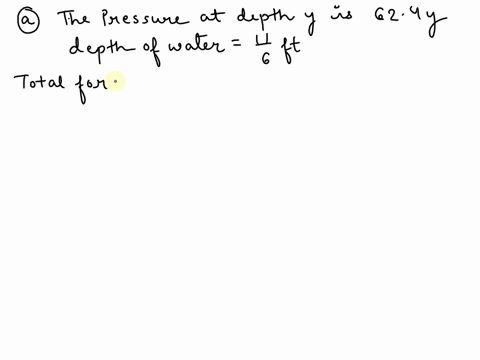 ⓐ The Pressure at depth y is 62.4y
depth of water = 11/6 ft
Total for